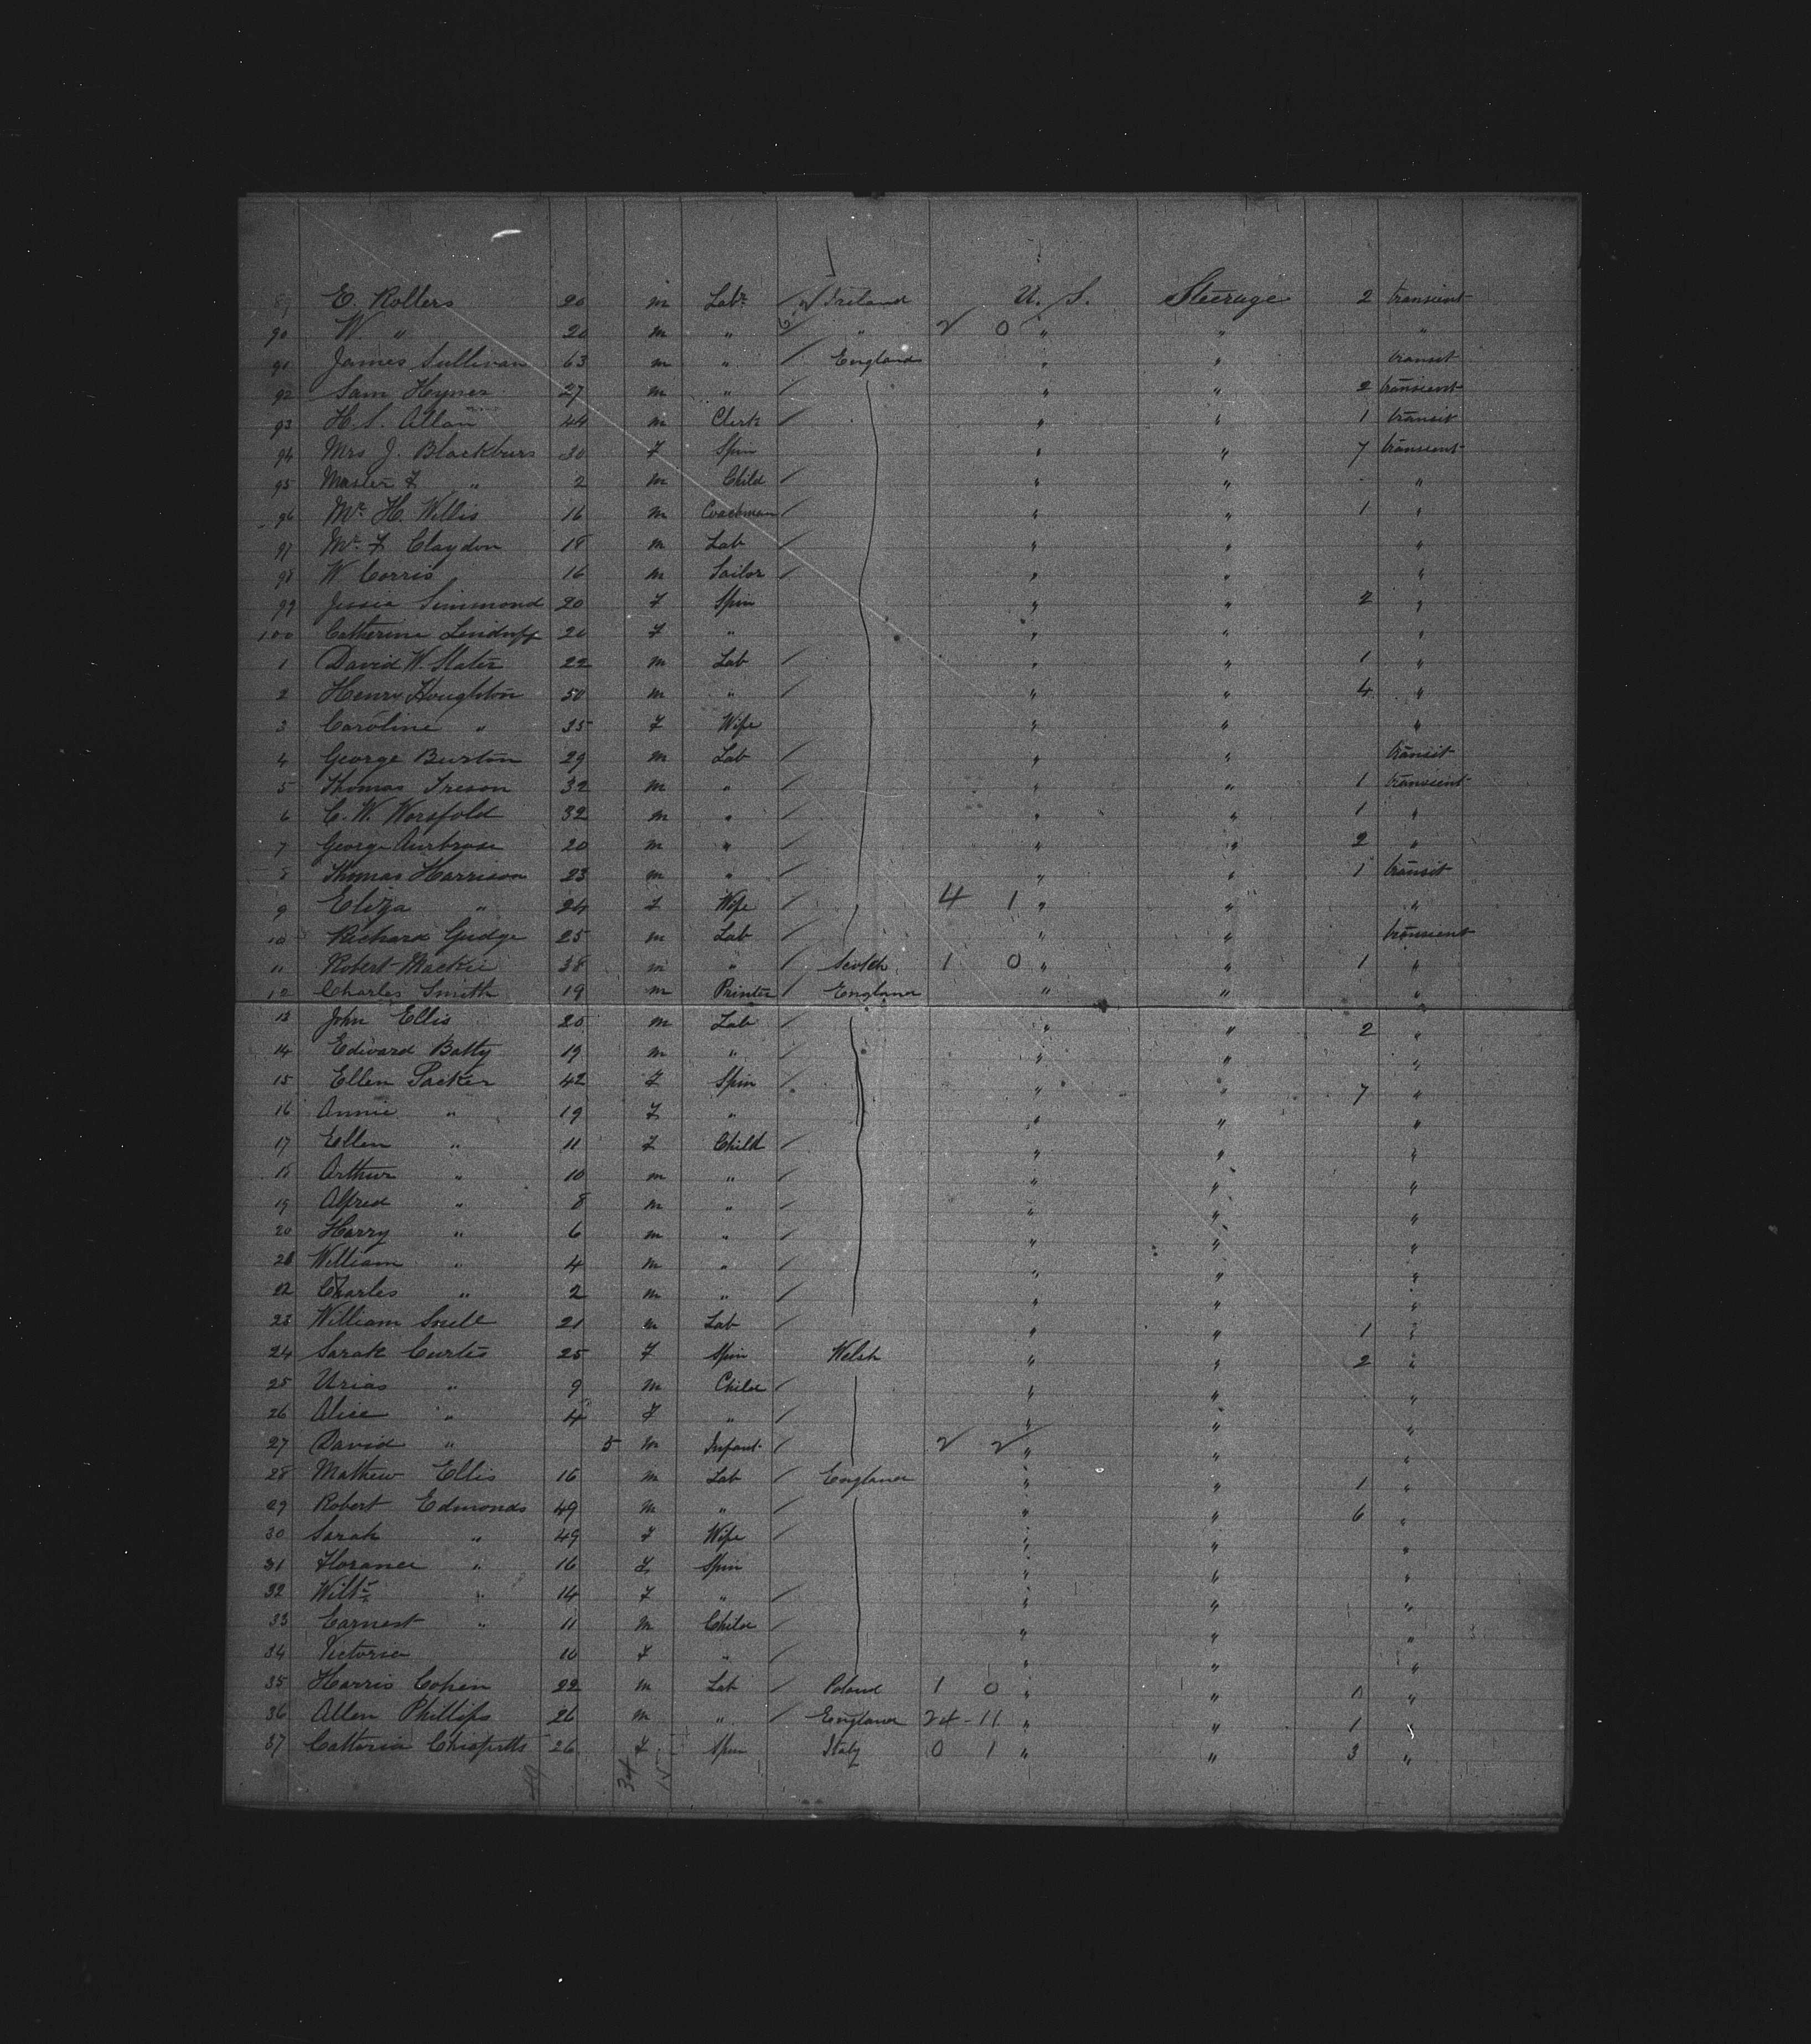 89 E. Rollers 20 m Labr Ireland U. S. Steerage 2 transient
90 W. " 20 m " " 2 0 " " "
91 James Sullivan 63 m " England " " transit
92 Sam Hynes 27 m " " " 2 transient
93 H. S. Allan 44 m Clerk " " 1 transit
94 Mrs J. Blackburs 30 F Spin " " 7 transient
95 Master F " 2 m Child " " "
96 Mr H. Willis 16 m Coachman " " 1 "
97 Mr F Claydon 18 m Lab " " "
98 W Corris 16 m Sailor " " "
99 Jessie Simmond 20 F Spin " " 2 "
100 Catherine 20 F " " " "
1 David W. Slater 22 m Lab " " 1 "
2 Henry Houghton 50 m " " " 4 "
3 Caroline " 35 F Wife " " "
4 George Burton 29 m Lab " " transit
5 Thomas Treson 32 m " " " 1 transient
6 C. W. Worsfold 32 m " " " 1 "
7 George Ambrose 20 m " " " 2 "
8 Thomas Harrison 23 m " " " 1 transit
9 Eliza " 24 F Wife 4 1 " " "
10 Richard Gudge 25 m Lab " " transient
11 Robert Mackie 38 m " Scotch 1 0 " " 1 "
12 Charles Smith 19 m Printer England " " "
13 John Ellis 20 m Lab " " 2 "
14 Edward Batty 19 m " " " "
15 Ellen Packer 42 F Spin " " 7 "
16 Annie " 19 F " " " "
17 Ellen " 11 F Child " " "
18 Arthur " 10 m " " " "
19 Alfred " 8 m " " " "
20 Harry " 6 m " " " "
21 William " 4 m " " " "
22 Charles " 2 m " " " "
23 William Snell 21 m Lab " " 1 "
24 Sarah Curtis 25 F Spin Welsh " " 2 "
25 Urias " 9 m Child " " "
26 Alice " 4 F " " " "
27 David " 5 m Infant 2 2 " " "
28 Mathew Ellis 16 m Lab England " " 1 "
29 Robert Edmonds 49 m " " " 6 "
30 Sarah " 49 F Wife " " "
31 Florance " 16 F Spin " " "
32 " 14 F " " " "
33 Earnest " 11 m Child " " "
34 Victoria 10 F " " " "
35 Harris Cohen 22 m Lab Poland 1 0 " " "
36 Allen Phillips 26 m " England 24 - 11 " " 1 "
37 Catteria 26 F Spin Italy 0 1 " " 3 "
34 15